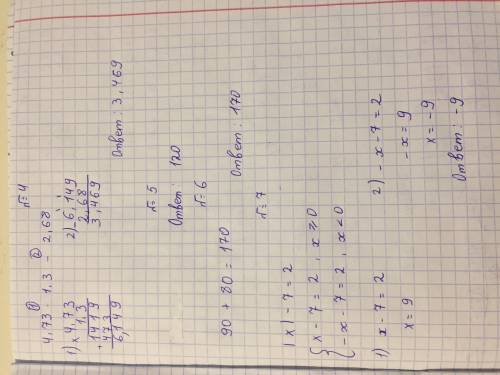 №4
4,73 · 1,3 - 2,68
1) × 4,73
1,3
+ 1419
473
6,149
2) - 6,149
2,68
3,469
Ответ: 3,469
№5
Ответ: 120
№6
90 + 80 = 170
Ответ: 170
№7
|x| - 7 = 2
{ x - 7 = 2, x ⩾ 0
-x - 7 = 2, x < 0
1) x - 7 = 2
x = 9
2) -x - 7 = 2
-x = 9
x = -9
Ответ: -9